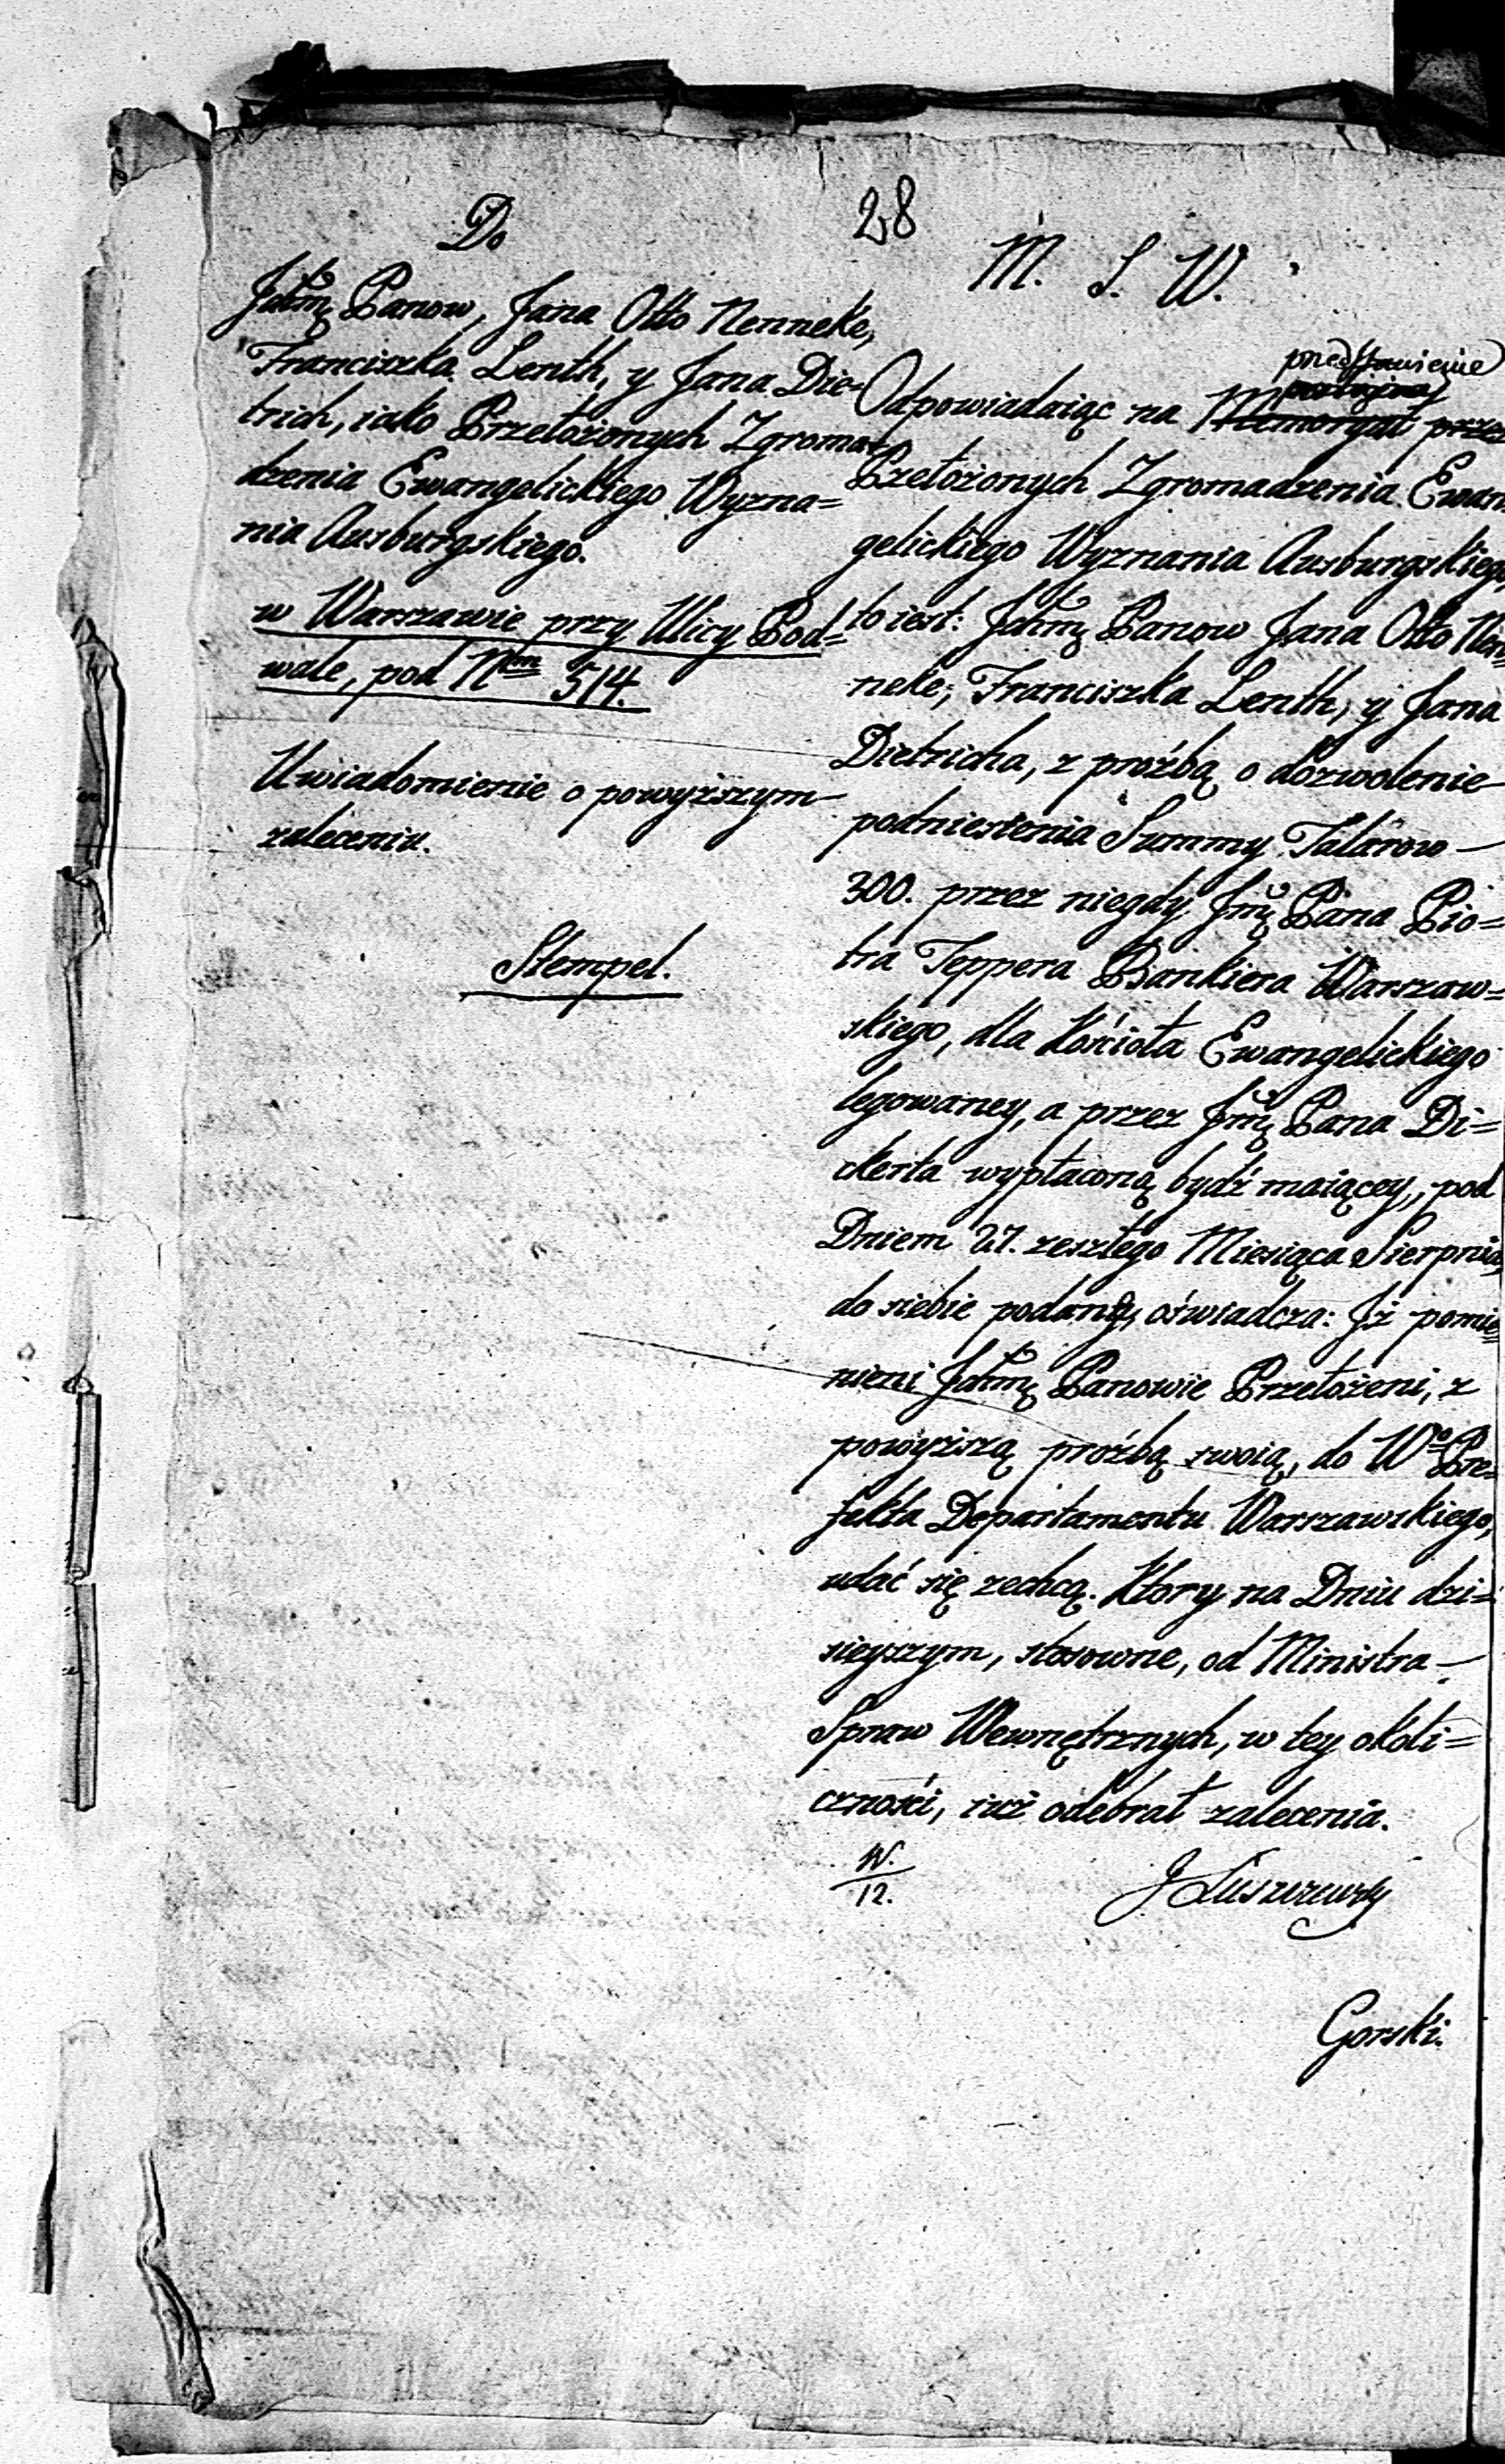 28
Do
Jchmę Panow, Jana Otto Nenneke,
Franciszka Lenth, y Jana Die-
trich, iako Przełożonych Zgroma-
dzenia Ewangelickiego Wyzna=
nia Ausburgskiego.
w Warszawie przy Ulicy Pod=
wale, pod Nrm 514.
Uwiadomienie o powyższym
zaleceniu.
Stempel.
M. S. W.
przedstawienie
Odpowiadaiąc na Memoryał przez
Przełożonych Zgromadzenia Ewan
gelickiego Wyznania Ausburgskiego
to iest: Jchmę Panow Jana Otto Nen=
neke, Franciszka Lenth, y Jana
Dietricha, z prożbą o dozwolenie
podniesienia Summy Talarow
300. przez niegdy Jmę Pana Pio=
tra Teppera Bankiera Warszaw=
skiego, dla Kościoła Ewangelickiego
legowaney, a przez Jmę Pana Di=
ckerta wypłaconą bydź maiącey, pod
Dniem 27. zeszłego Miesiąca Sierpnia,
do siebie podane, oświadcza: Jż pomie=
nieni Jchmę Panowie Przełożeni, z
powyższą prożbą swoią, do Wo Pre=
fekta Departamentu Warszawskiego,
udać się zechcą. Ktory na Dniu dzi=
sieyszym, stosowne, od Ministra
Spraw Wewnętrznych, w tey okoli=
czności, iuż odebrał zalecenia.
W.
12.
J Łuszczewsky
Gorski.